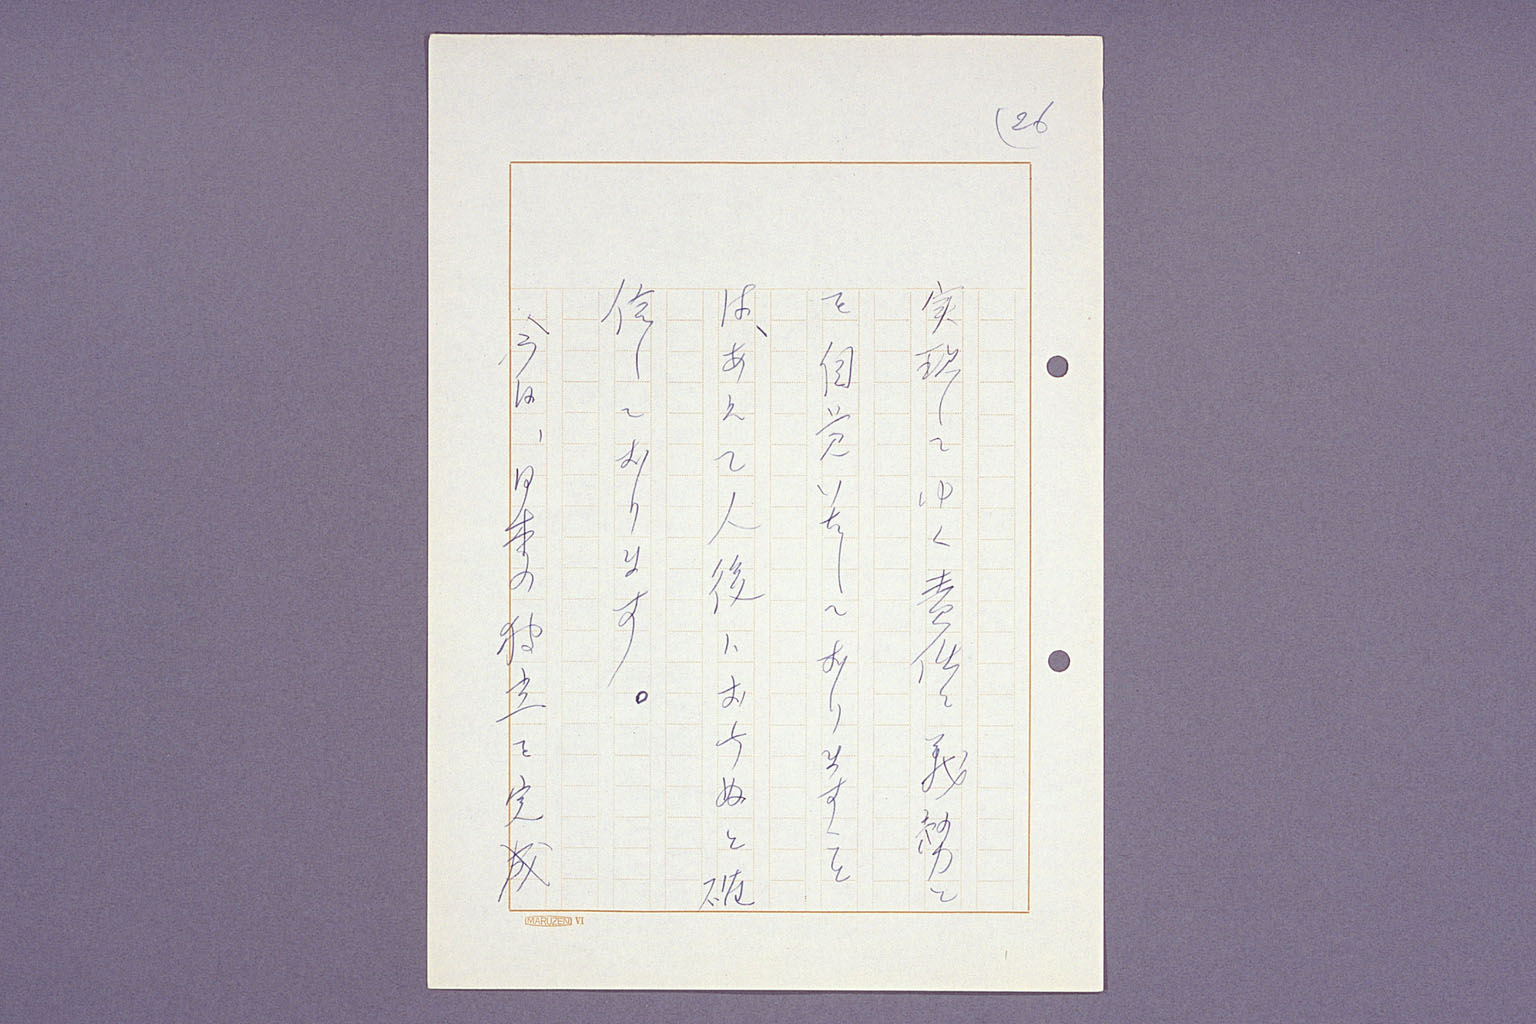 (26
実現してゆく責任と義務と
を自覚いたしておりますこと
は、あえて人後におちぬと確
信しております。
今は、日本の独立を完成
MARUZEN VI